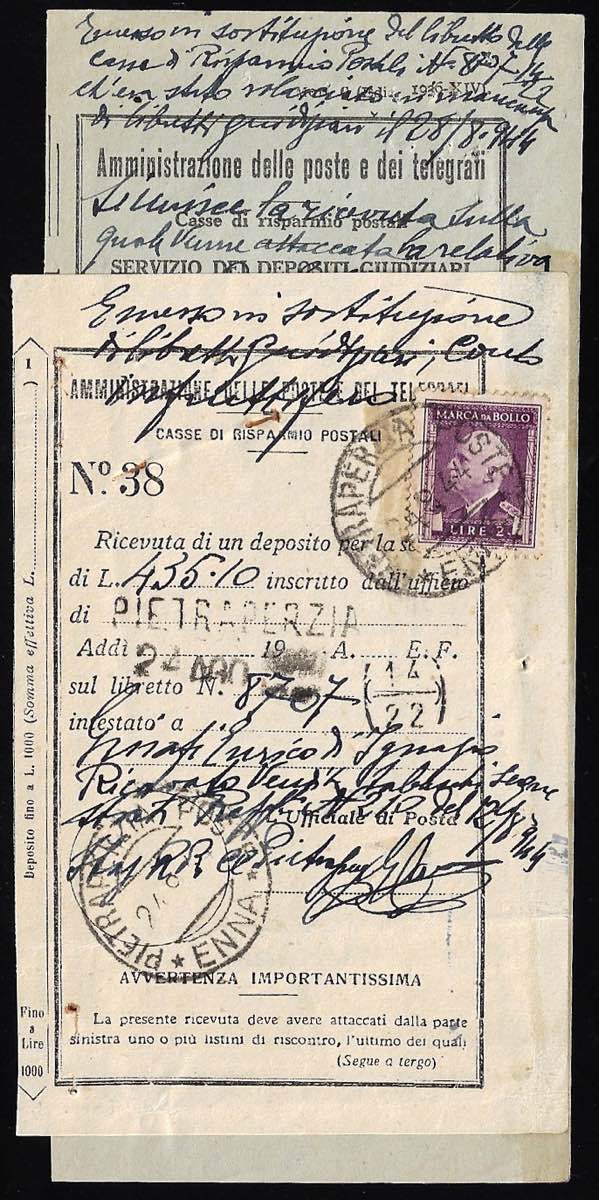 Emesso in sostituzione del libretto delle
casse di Risparmio Postali N. 8707/14/22
ch'era stato rilasciato in mancanza
di libretti giudiziari il 28/8.944
1936-XIV
Amministrazione delle poste e dei telegrafi
Si unisce la ricevuta sulla
Casse di risparmio postali
quale venne attaccata la relativa
SERVIZIO DEI DEPOSITI GIUDIZIARI
Emesso in sostituzione
di libretti giudiziari, Conto
AMMINISTRAZIONE DELLE POSTE E DEI TELEGRAFI
infruttifero
CASSE DI RISPARMIO POSTALI
MARCA DA BOLLO
LIRE 2
PIETRAPERZIA POSTE
★ ENNA ★
1
Nº. 38
Ricevuta di un deposito per la so
di L. 435.10 inscritto dall'ufficio
di PIETRAPERZIA
Addì 24 AGO 19 A. E. F.
sul libretto N. 8707 (14/22)
intestato a
Enrico di Ignazio
Ricavato vendita
del 12/8 944
L'Ufficiale di Posta
RR
PIETRAPERZIA POSTE
24.8
★ ENNA ★
AVVERTENZA IMPORTANTISSIMA
La presente ricevuta deve avere attaccati dalla parte
sinistra uno o più listini di riscontro, l'ultimo dei quali
(Segue a tergo)
Deposito fino a L. 1000 (Somma effettiva L.
Fino
a
Lire
1000